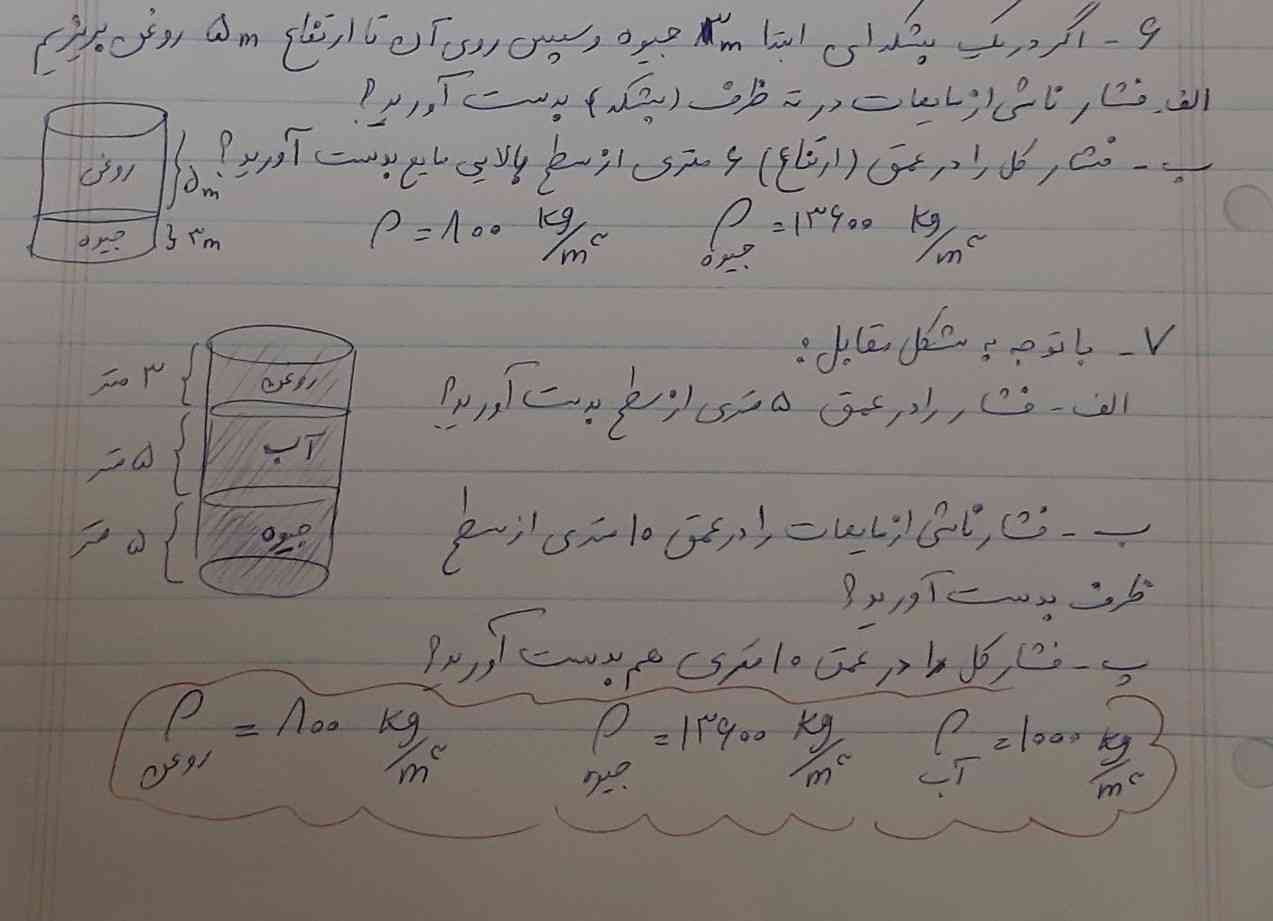 ۶ - اگر در یک بشکه ای ابتدا ۳m جیوه و سپس روی آن تا ارتفاع ۵m روغن بریزیم
الف - فشار ناشی از مایعات در ته ظرف (بشکه) بدست آورید؟
ب - فشار کل را در عمق (ارتفاع) ۶ متری از سطح بالایی مایع بدست آورید؟
روغن
۵m
جیوه
۳m
ρ = ۸۰۰ kg/m³
ρ جیوه = ۱۳۶۰۰ kg/m³
۷ - با توجه به شکل مقابل:
الف - فشار را در عمق ۵ متری از سطح بدست آورید؟
ب - فشار ناشی از مایعات را در عمق ۱۰ متری از سطح
ظرف بدست آورید؟
پ - فشار کل را در عمق ۱۰ متری هم بدست آورید؟
۳ متر
روغن
۵ متر
آب
۵ متر
جیوه
ρ روغن = ۸۰۰ kg/m³
ρ جیوه = ۱۳۶۰۰ kg/m³
ρ آب = ۱۰۰۰ kg/m³